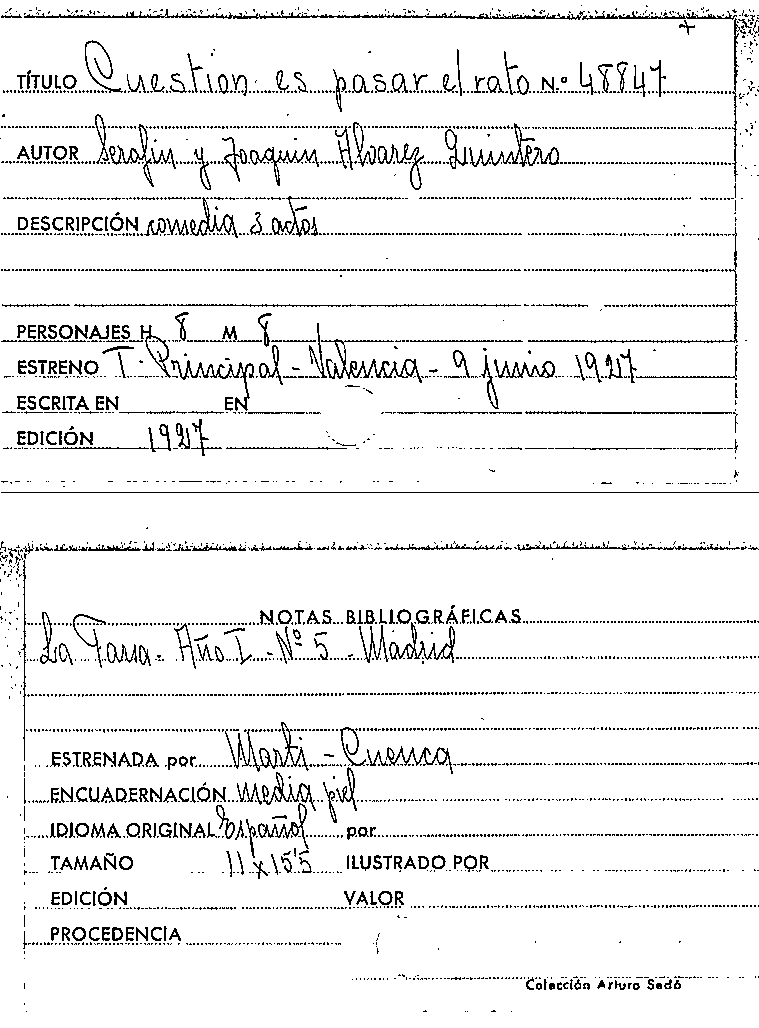 +
TÍTULO Cuestion es pasar el rato N.º 48847
AUTOR Serafin y Joaquin Alvarez Quintero
DESCRIPCIÓN comedia 3 actos
PERSONAJES H 8 M 8
ESTRENO T. Principal - Valencia - 9 junio 1927
ESCRITA EN EN
EDICIÓN 1927
NOTAS BIBLIOGRÁFICAS
La Farsa. Año I - Nº 5 - Madrid
ESTRENADA por Marti - Cuenca
ENCUADERNACIÓN media piel
IDIOMA ORIGINAL Español por
TAMAÑO 11 x 15'5 ILUSTRADO POR
EDICIÓN VALOR
PROCEDENCIA
Colección Arturo Sedó